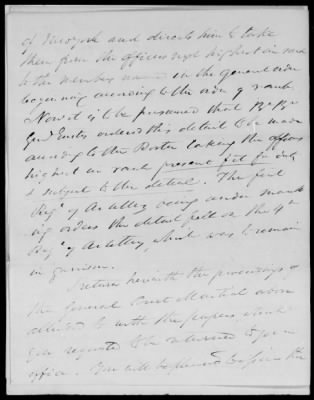 of New york and directs him to take
them from the officers next highest in rank
to the members named in the general order
beginning according to the order of rank.
Now it is to be presumed that Bt Br
Genl Eustis ordered this detail to be made
according to the Roster taking the officers
highest in rank present fit for duty
& subject to the detail. The first
Regt of Artillery being under march
ing orders the detail fell on the 4th
Regt of Artillery, which was to remain
in garrison.
I return herewith the proceedings of
the General Court Martial above
alluded to with the papers which
you requested to be returned to your
office. You will be pleased to